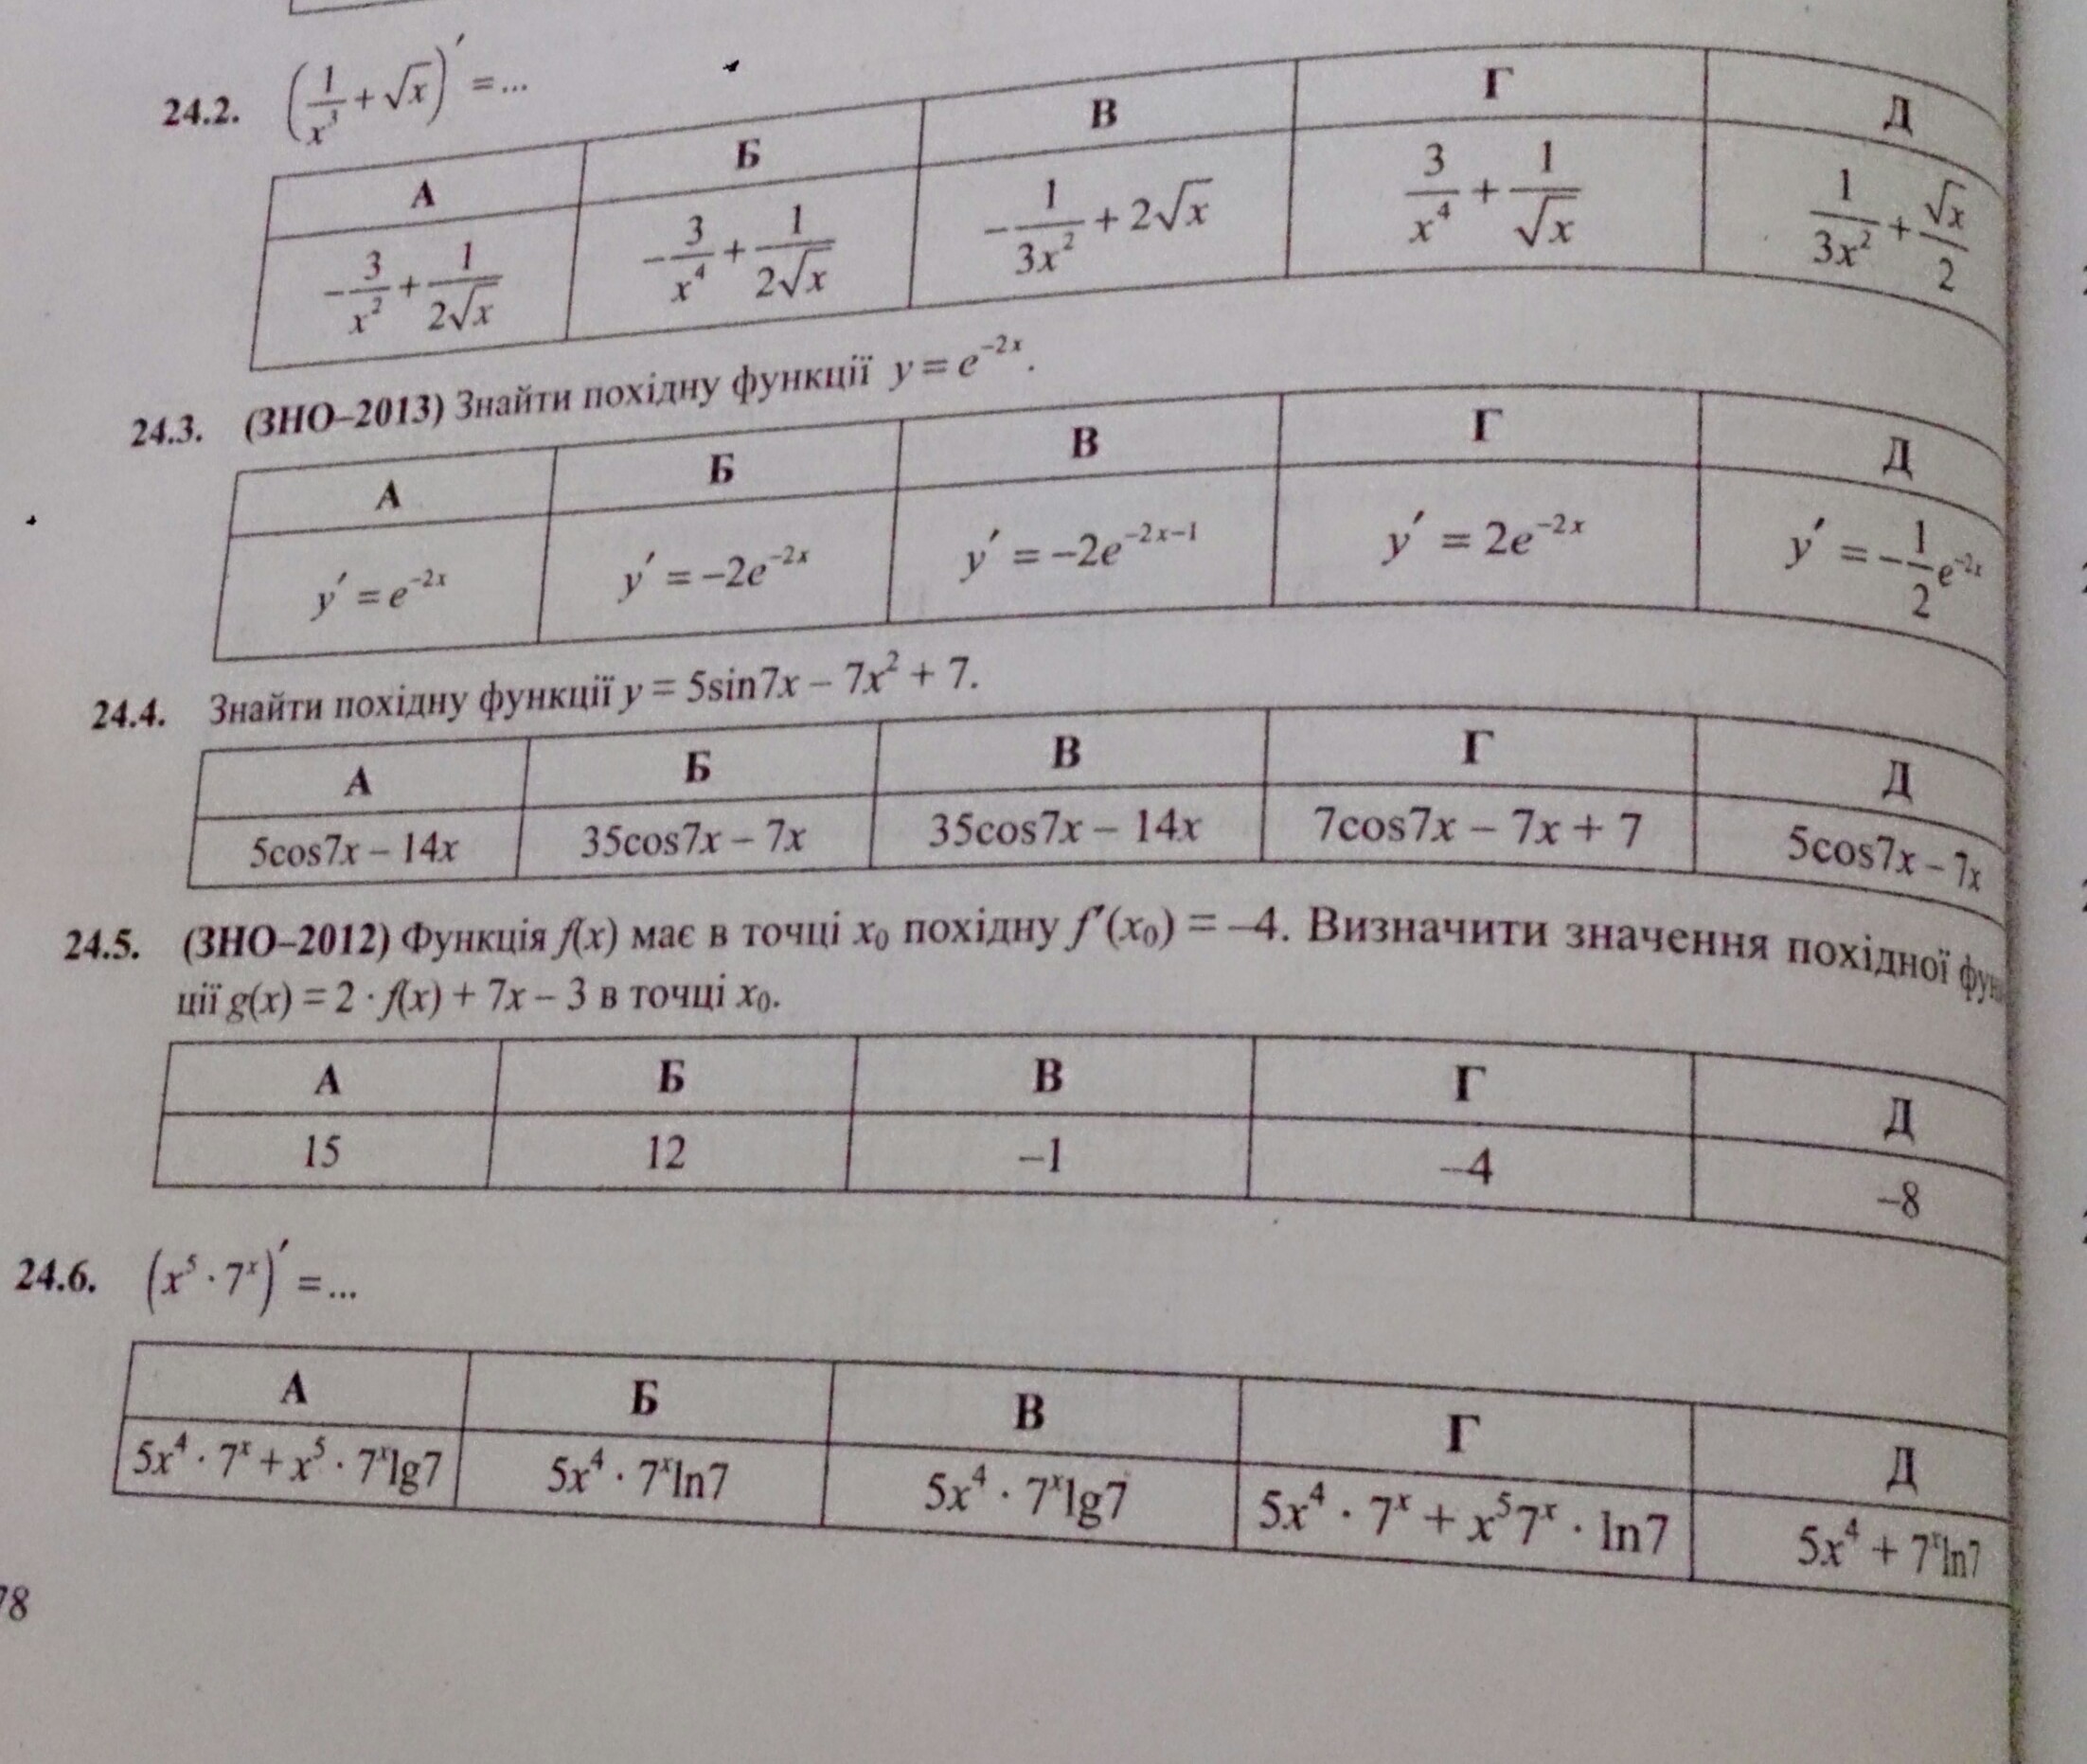 24.2. (1/x³ + √x)′ = ...
А Б В Г Д
−3/x² + 1/(2√x) −3/x⁴ + 1/(2√x) −1/(3x²) + 2√x 3/x⁴ + 1/√x 1/(3x²) + √x/2
24.3. (ЗНО–2013) Знайти похідну функції y = e⁻²ˣ.
А Б В Г Д
y′ = e⁻²ˣ y′ = −2e⁻²ˣ y′ = −2e⁻²ˣ⁻¹ y′ = 2e⁻²ˣ y′ = −1/2 e⁻²ˣ
24.4. Знайти похідну функції y = 5sin7x – 7x² + 7.
А Б В Г Д
5cos7x – 14x 35cos7x – 7x 35cos7x – 14x 7cos7x – 7x + 7 5cos7x – 7x
24.5. (ЗНО–2012) Функція f(x) має в точці x₀ похідну f′(x₀) = –4. Визначити значення похідної
ції g(x) = 2 · f(x) + 7x – 3 в точці x₀.
А Б В Г Д
15 12 –1 –4 –8
24.6. (x⁵ · 7ˣ)′ = ...
А Б В Г Д
5x⁴ · 7ˣ + x⁵ · 7ˣlg7 5x⁴ · 7ˣln7 5x⁴ · 7ˣlg7 5x⁴ · 7ˣ + x⁵7ˣ · ln7 5x⁴ + 7ˣln7
78